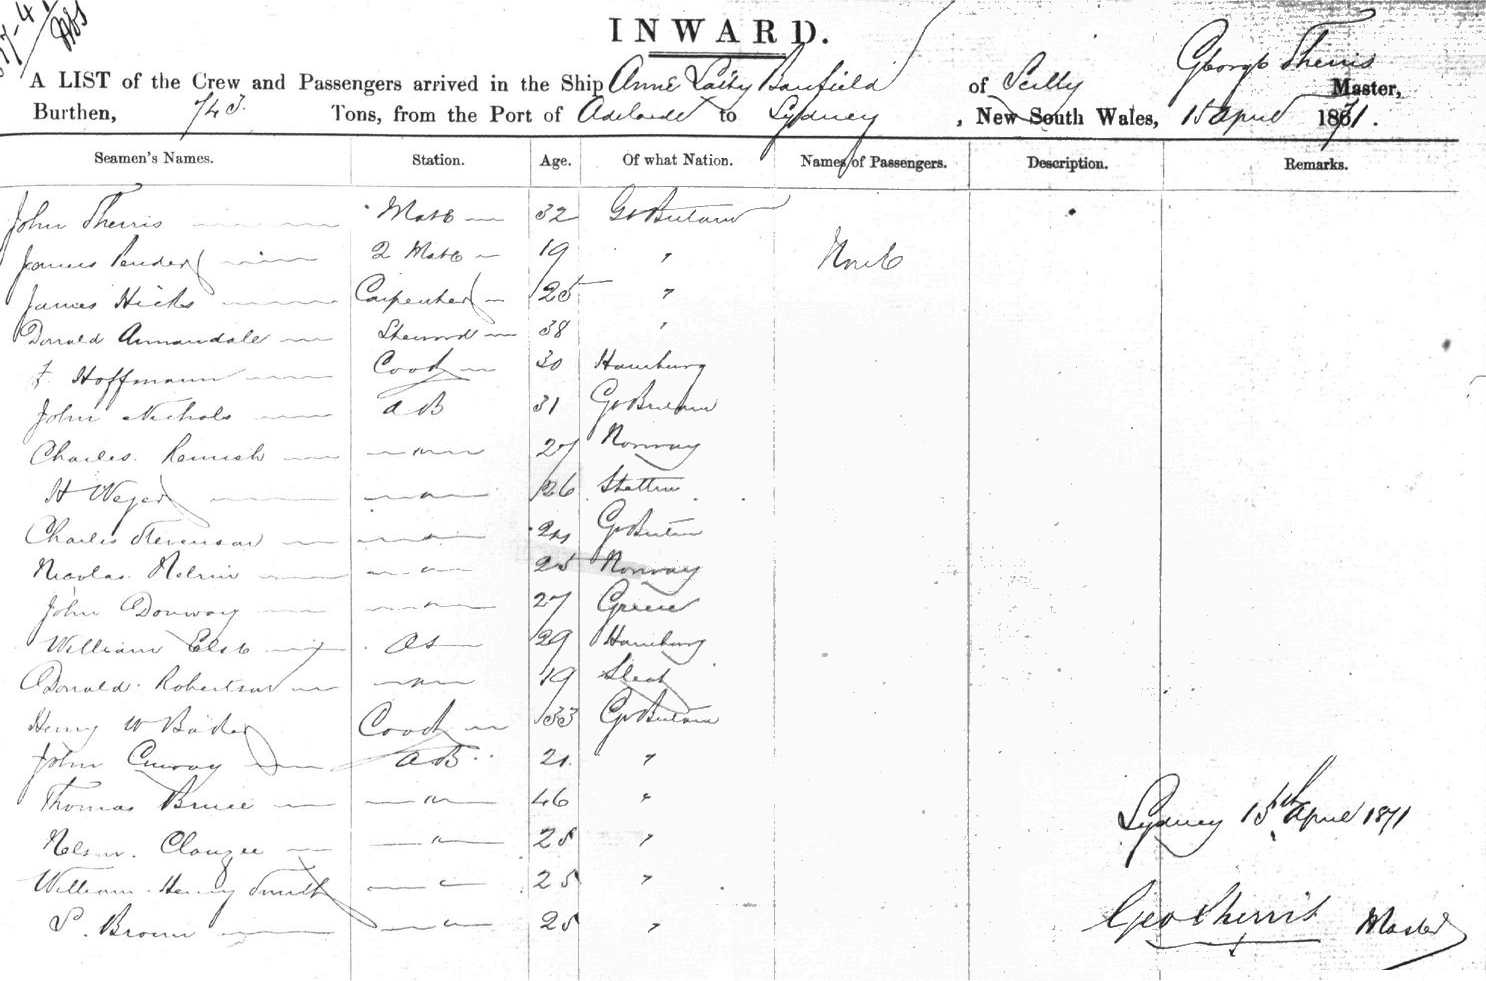 INWARD.
George Sherris
A LIST of the Crew and Passengers arrived in the Ship Anne Laity Banfield of Scilly Master,
Burthen, 743 Tons, from the Port of Adelaide to Sydney, New South Wales, 15 April 1871.
Seamen's Names. Station. Age. Of what Nation. Names of Passengers. Description. Remarks.
John Sherris Mate 32 Gt Britain
Pender 2 Mate 19 " None
James Hicks Carpenter 25 "
Donald Annandale Steward 38 "
F Hoffmann Cook 30 Hamburg
John Nichols AB 31 Gt Britain
Charles " 27 Norway
H Weyer " 26 Stettin
Charles Stevenson " 24 Gt Britain
Nicolas " 25 Norway
John " 27 Greece
William Else OS 29 Hamburg
Donald Robertson " 19
Henry W Baker Cook 33 Gt Britain
John Conway AB 21 "
Thomas Bruce " 46 "
Nelson " 28 "
William Henry Smith " 25 "
S. Brown " 25 "
Sydney 15th April 1871
Geo Sherris Master